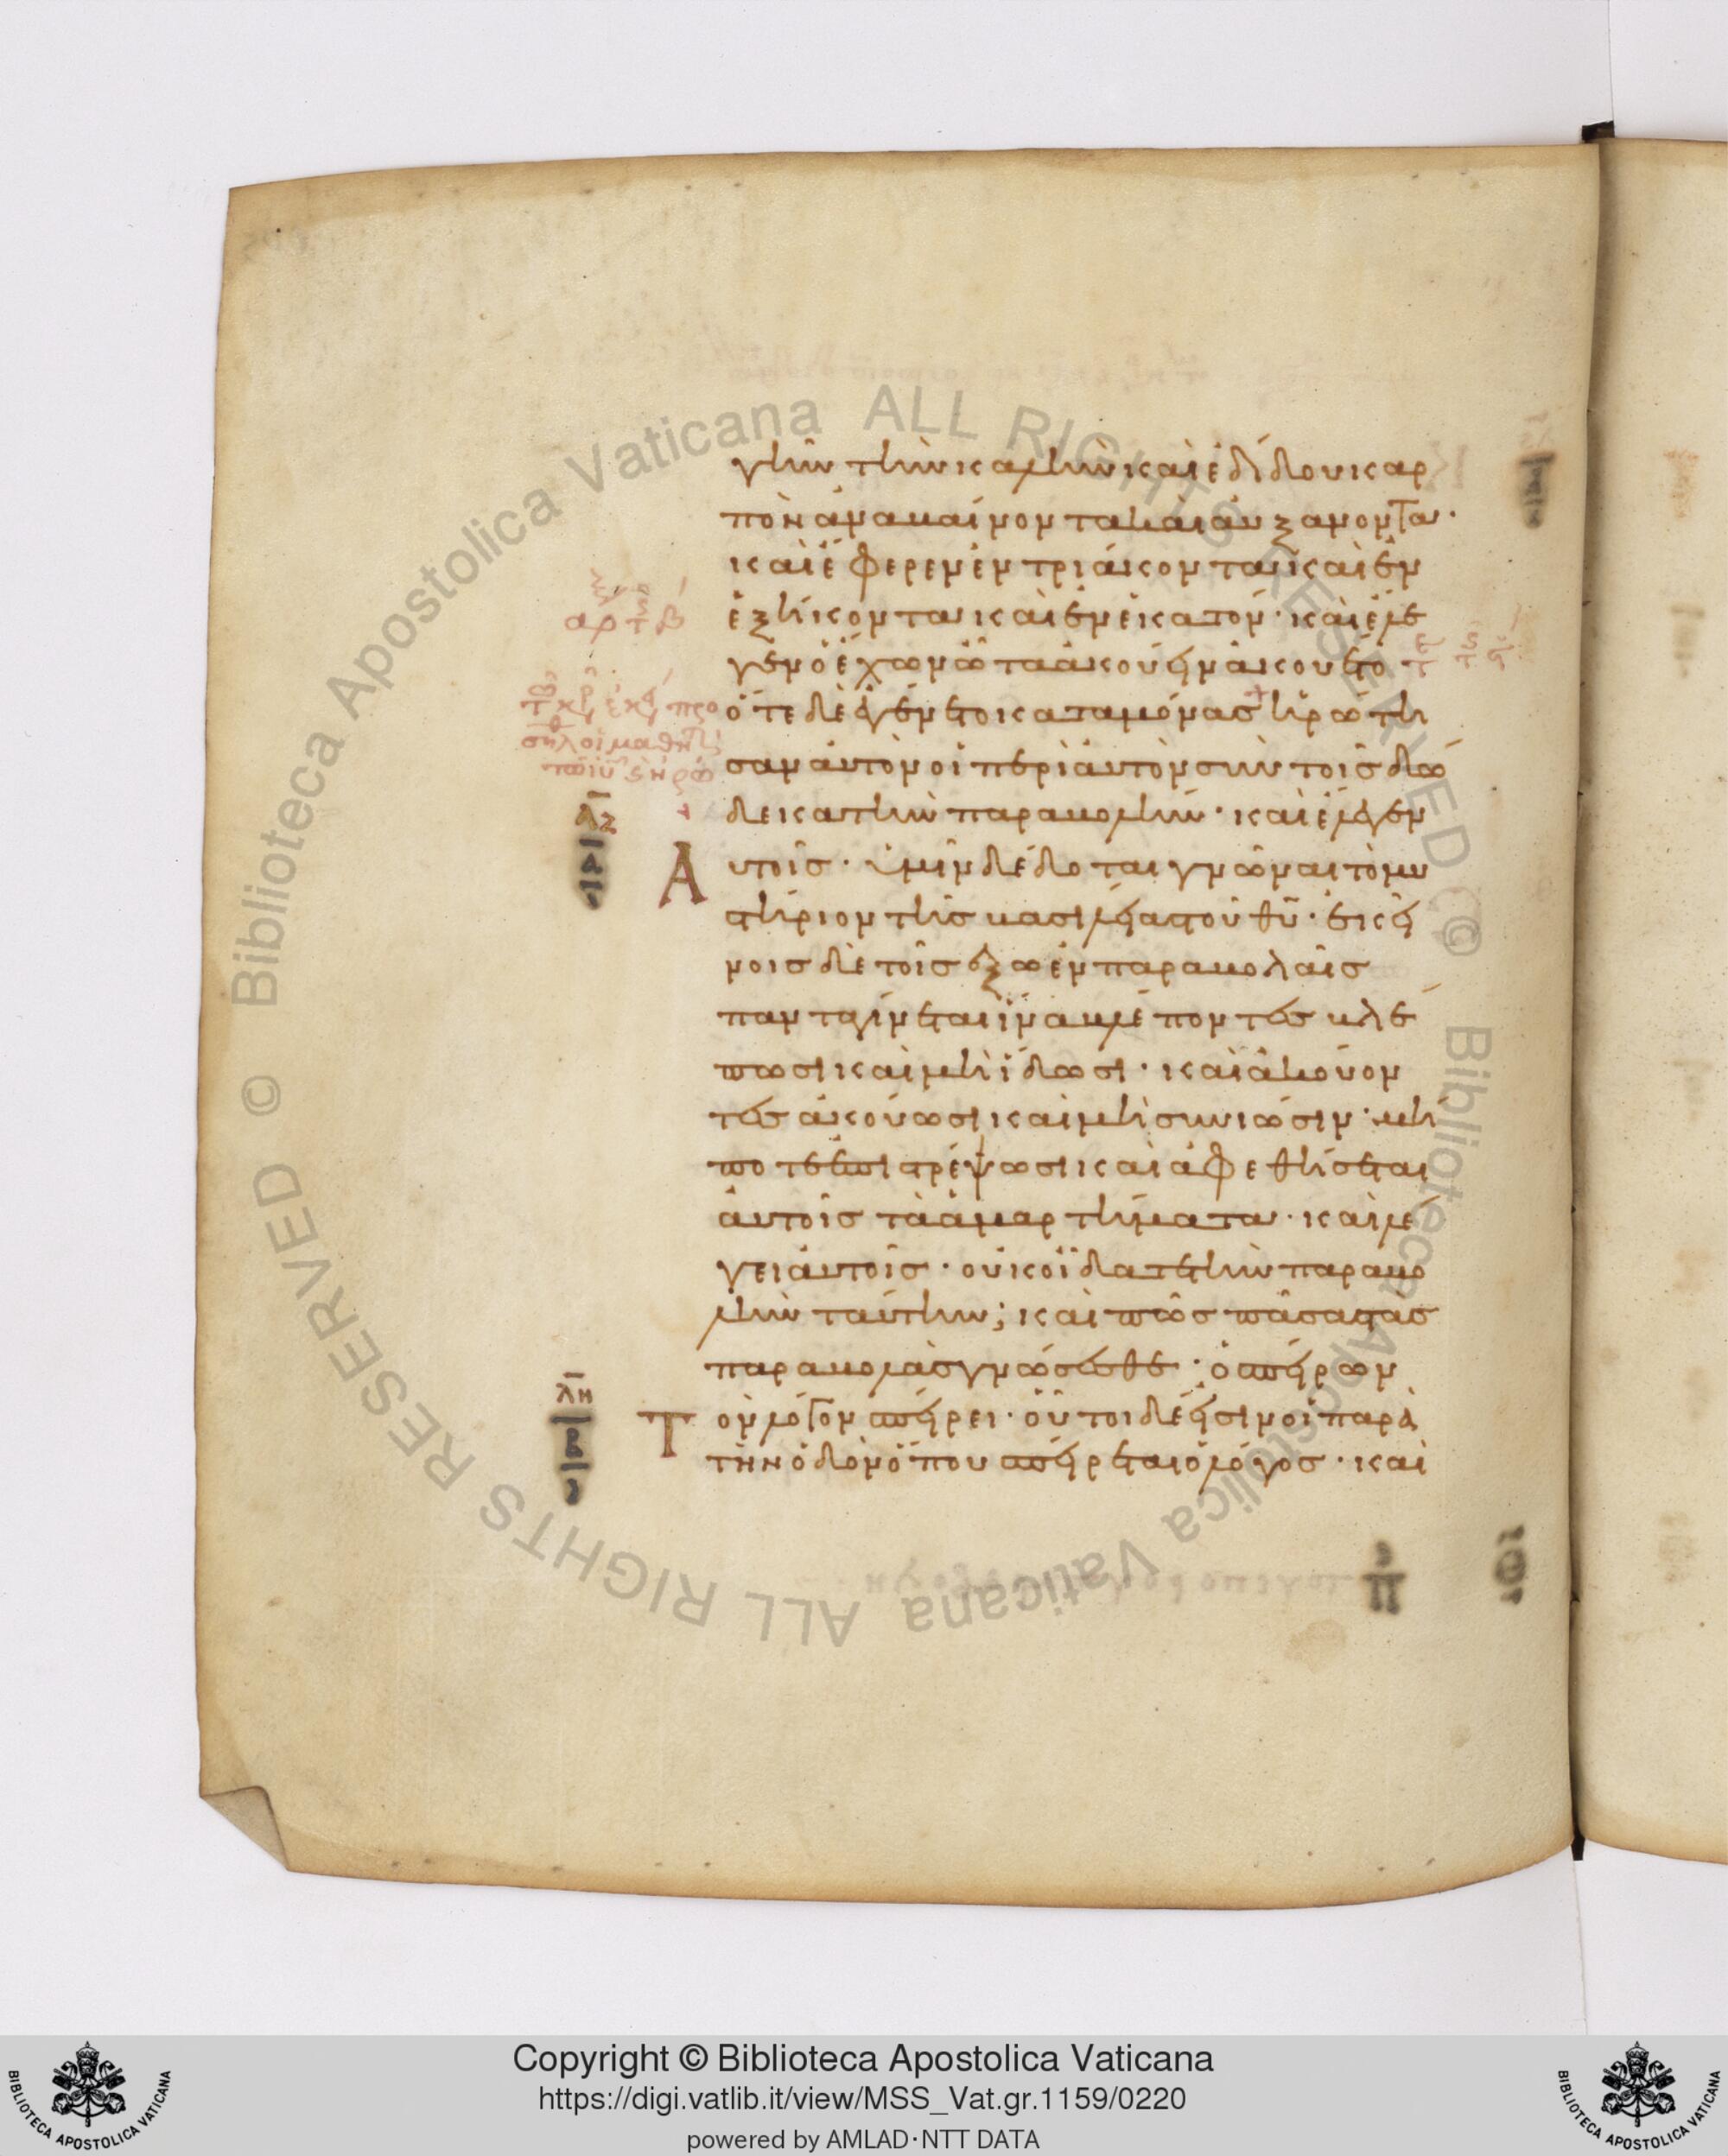 γῆν τὴν καλὴν καὶ ἐδίδου καρ
πὸν ἀναβαίνοντα καὶ αὐξάνοντα·
καὶ ἔφερεν ἐν τριάκοντα καὶ ἐν
ἑξήκοντα καὶ ἐν ἑκατόν· καὶ ἔλε
γεν ὁ ἔχων ὦτα ἀκούειν ἀκουέτω
ὅτε δὲ ἐγένετο καταμόνας ἠρώτη
σαν αὐτὸν οἱ περὶ αὐτὸν σὺν τοῖς δώ
δεκα τὴν παραβολήν· καὶ ἔλεγεν
λζ
Α
υτοῖς· ὑμῖν δέδοται γνῶναι τὸ μυ
στήριον τῆς βασιλείας τοῦ θῦ· ἐκεί
νοις δὲ τοῖς ἔξω ἐν παραβολαῖς
πάντα γίνεται ἵνα βλέποντες βλέ
πωσι καὶ μὴ ἴδωσι· καὶ ἀκούον
τες ἀκούωσι καὶ μὴ συνιῶσιν· μή
ποτε ἐπιστρέψωσι καὶ ἀφεθήσεται
αὐτοῖς τὰ ἁμαρτήματα· καὶ λέ
γει αὐτοῖς· οὐκ οἴδατε τὴν παραβο
λὴν ταύτην; καὶ πῶς πάσας τὰς
παραβολὰς γνώσεσθε· ὁ σπείρων
λη
Τ
ὸν λόγον σπείρει· οὗτοι δέ εἰσιν οἱ παρὰ
τὴν ὁδὸν ὅπου σπείρεται ὁ λόγος· καὶ
Copyright © Biblioteca Apostolica Vaticana
https://digi.vatlib.it/view/MSS_Vat.gr.1159/0220
powered by AMLAD·NTT DATA
BIBLIOTECA APOSTOLICA VATICANA
BIBLIOTECA APOSTOLICA VATICANA
© Biblioteca Apostolica Vaticana ALL RIGHTS RESERVED
© Biblioteca Apostolica Vaticana ALL RIGHTS RESERVED